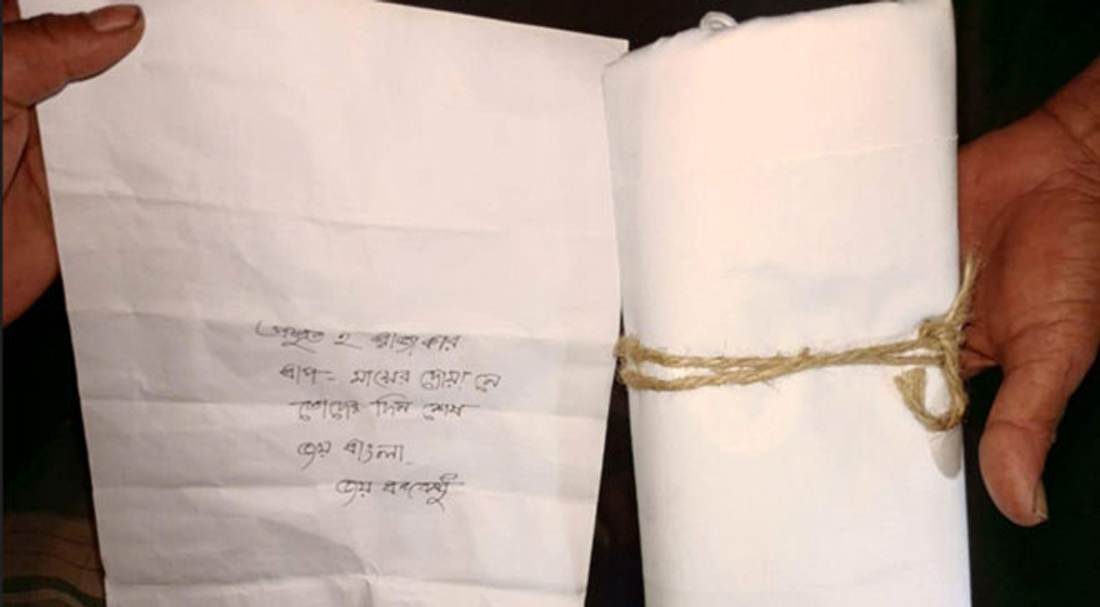 প্রস্তুত হ রাজাকার
বাপ - মায়ের দোয়া নে
তোদের দিন শেষ
জয় বাংলা
জয় বঙ্গবন্ধু